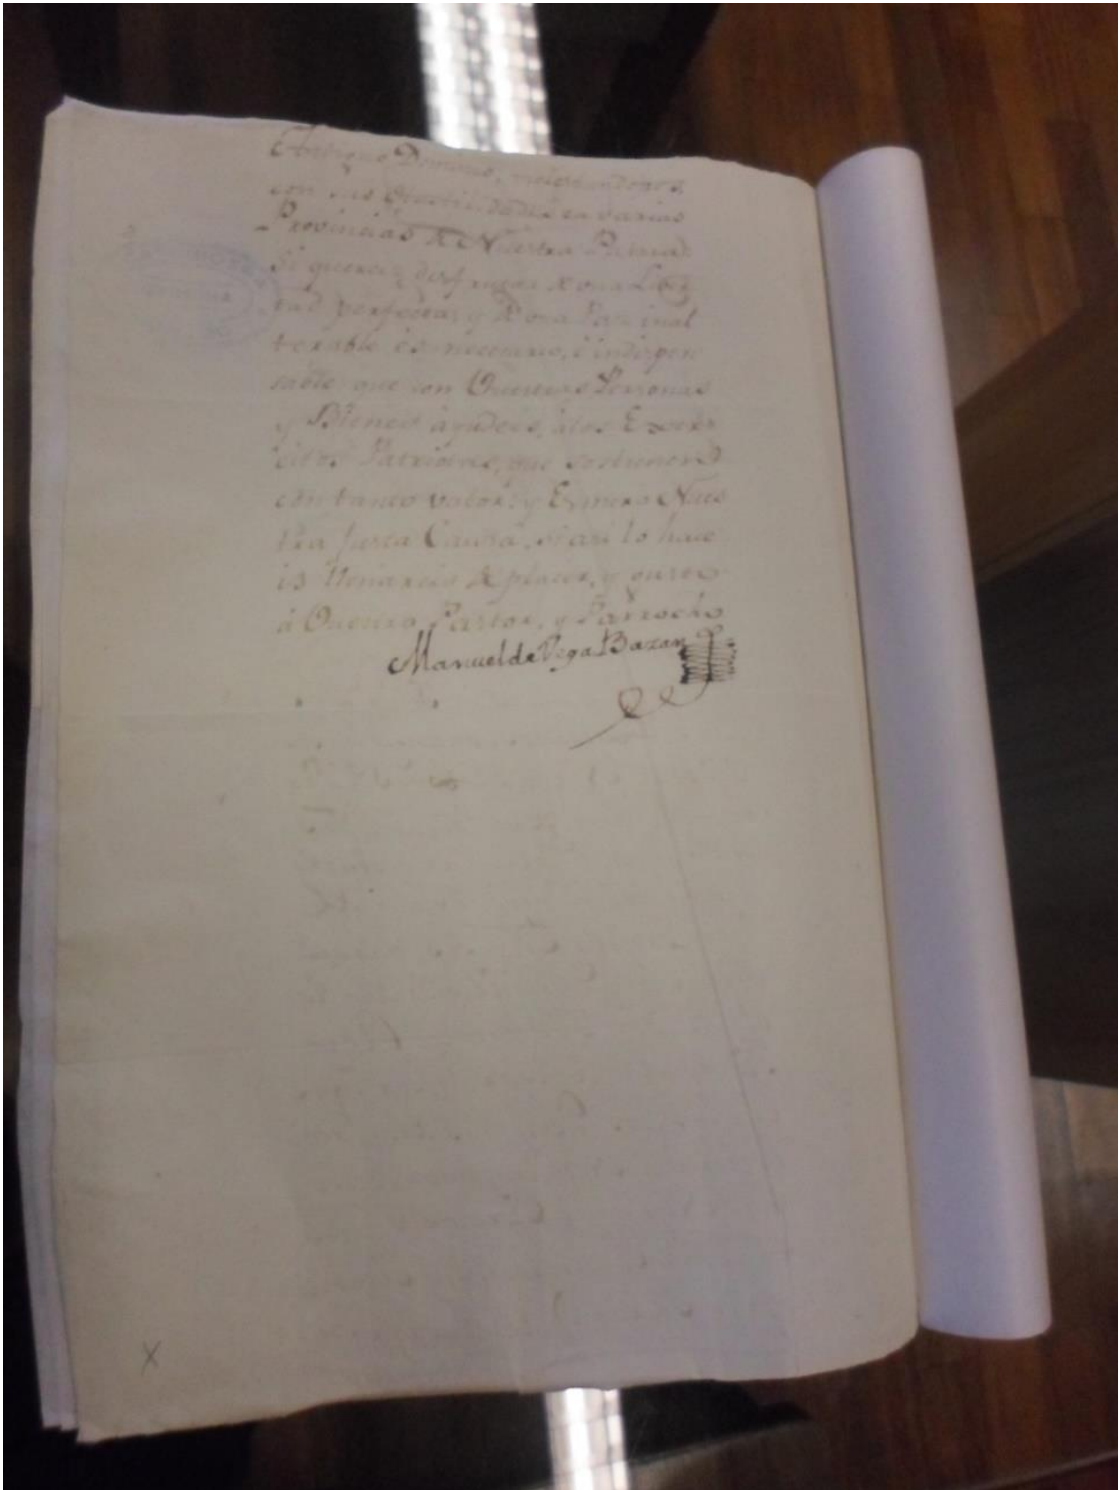 Antiguo Dominio, molestandonos,
con sus Ostilidades en varias
Provincias de Nuestra Patria.
Si quereis disfrutar de una Liver
tad perfecta, y de una Paz inal
terable es necesario, é indispen
sable, que con Vuestras Personas
y Bienes ayudeis, à los Exerc
citos Patriotas, que sostienen
con tanto valor, y Esmero Nues
tra Justa Causa, si asi lo hace
is llenareis de placer, y gusto
à Vuestro Pastor, y Parrocho
Manuel de Vega Bazan
X